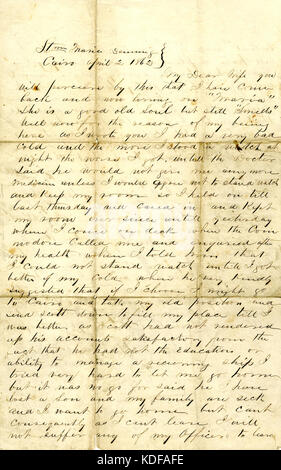 Stmr Maria Denning
Cairo April 2 1862
My Dear Wife you
will perceive by this that I have come
back and now living on "Maria"
She is a good old Soul but still Smells
Well now for the reason of my being
here as I wrote you I had a very bad
Cold and the more I stood watch at
night the worse I got, untill the Doctor
said he would not give me any more
Medicin unless I would agree not to stand watch
and Keep my room so I held on till
last thursday and Caved in and Kept
my room ever since untill yesterday
when I came on deck when the Com
modore Called me and enquired after
my health when I told him that
I Could not stand watch untill I got
better of my cold when he very kindly
suggested that if I choose I might go
to Cairo and take my old position and
send Scott down to fill my place till I
was better as Scott had not rendered
up his accounts satisfactory from the
fact that he had not the education or
ability to manage a receiving ship I
tried very hard to let me go home
but it was no go for said he I have
lost a son and my family are sick
and I want to go home but cant
consequently as I cant leave I will
not suffer any of my Officers to leave
alamy
Image ID: KDFAFE
www.alamy.com